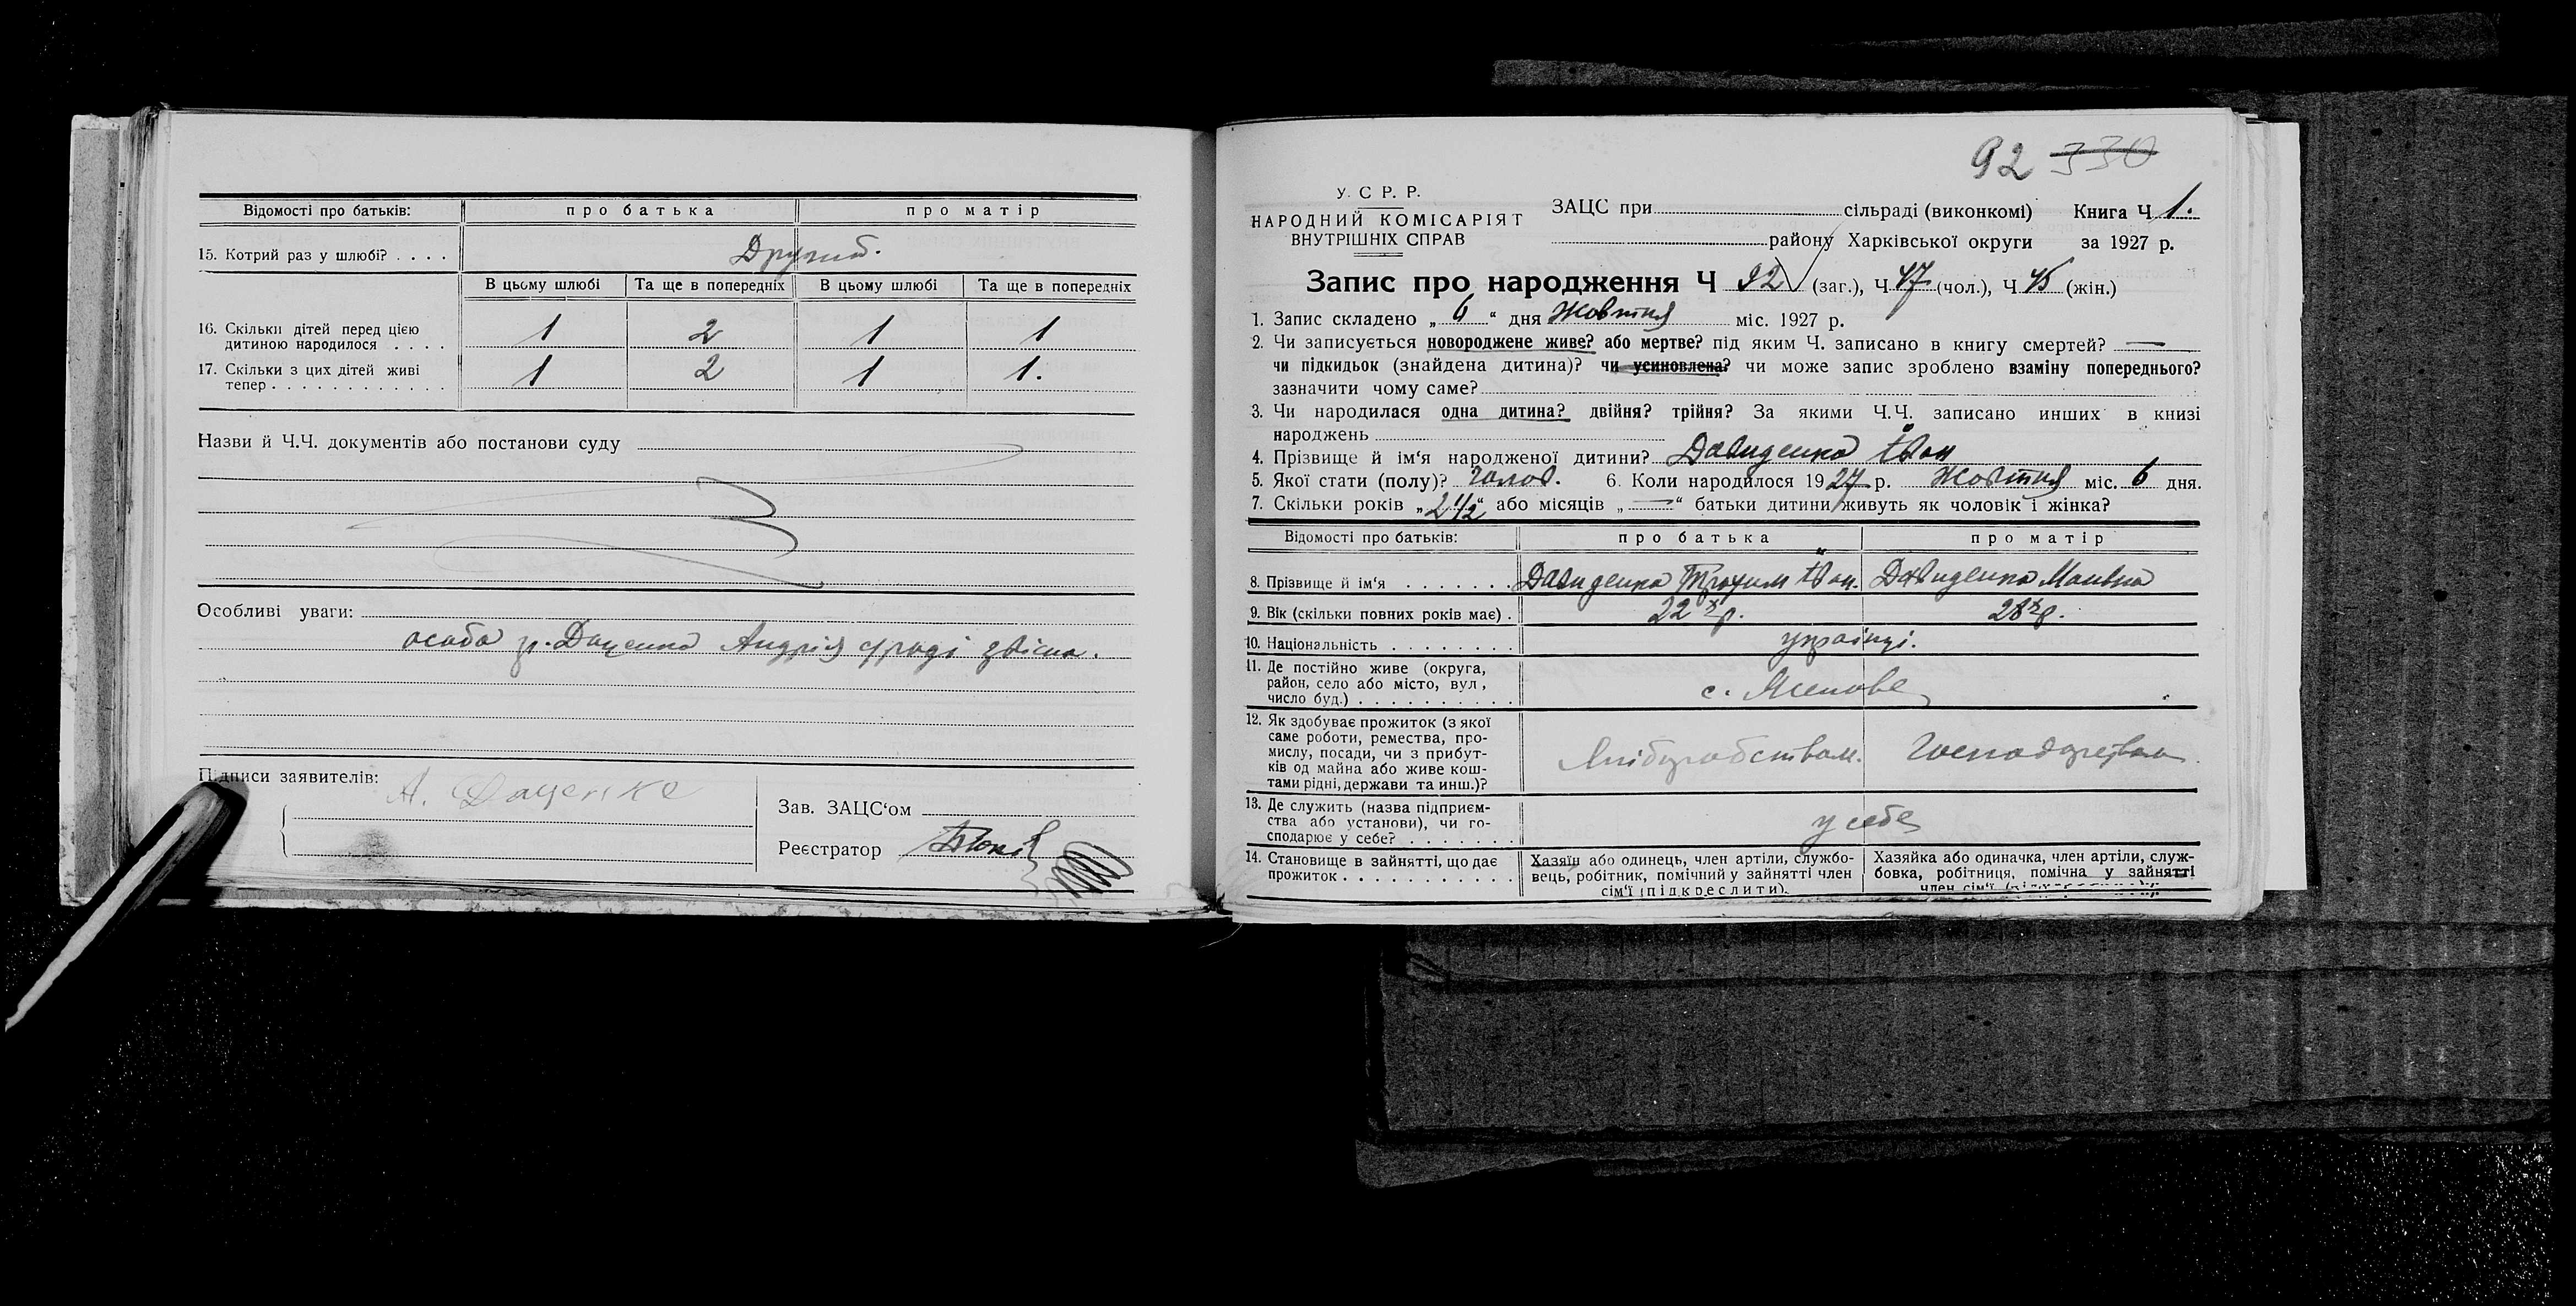 Відомості про батьків: про батька про матір
15. Котрий раз у шлюбі? . . . . Другий.
В цьому шлюбі Та ще в попередніх В цьому шлюбі Та ще в попередніх
16. Скільки дітей перед цією
дитиною народилося . . . . 1 2 1 1
17. Скільки з цих дітей живі
тепер . . . . . . . . . . . . 1 2 1 1.
Назви й Ч.Ч. документів або постанови суду
Особливі уваги:
особа гр. Даценка Андрія с/раді звісна.
Підписи заявителів:
А. Даценко
Зав. ЗАЦС‘ом
Реєстратор
92 330
У. С Р. Р.
НАРОДНИЙ КОМІСАРІЯТ
ВНУТРІШНІХ СПРАВ
ЗАЦС при сільраді (виконкомі) Книга Ч 1.
району Харківської округи за 1927 р.
Запис про народження Ч 92 (заг.), Ч 47 (чол.), Ч 45 (жін.)
1. Запис складено „ 6 “ дня Жовтня міс. 1927 р.
2. Чи записується новороджене живе? або мертве? під яким Ч. записано в книгу смертей? —
чи підкидьок (знайдена дитина)? чи усиновлена? чи може запис зроблено взаміну попереднього?
зазначити чому саме?
3. Чи народилася одна дитина? двійня? трійня? За якими Ч.Ч. записано инших в книзі
народжень
4. Прізвище й ім‘я народженої дитини? Давиденко Іван
5. Якої стати (полу)? чолов. 6. Коли народилося 1927 р. Жовтня міс. 6 дня.
7. Скільки років „2 1/2“ або місяців „ — “ батьки дитини живуть як чоловік і жінка?
Відомості про батьків: про батька про матір
8. Прізвище й ім‘я . . . . . . . Давиденко Трохим Іван. Давиденко
9. Вік (скільки повних років має) . 22 р. 28 р.
10. Національність . . . . . . . . українці.
11. Де постійно живе (округа,
район, село або місто, вул,
число буд.) . . . . . . . . . . с.
12. Як здобуває прожиток (з якої
саме роботи, ремества, про-
мислу, посади, чи з прибут-
ків од майна або живе кош-
тами рідні, держави та инш.)? Хліборобством. Господарством.
13. Де служить (назва підприєм-
ства або установи), чи го-
сподарює у себе? . . . . . . . у себе
14. Становище в зайнятті, що дає
прожиток . . . . . . . . . . .
Хазяїн або одинець, член артіли, службо-
вець, робітник, помічний у зайнятті член
сім‘ї (підкреслити).
Хазяйка або одиначка, член артіли, служ-
бовка, робітниця, помічна у зайнятті
член сім‘ї